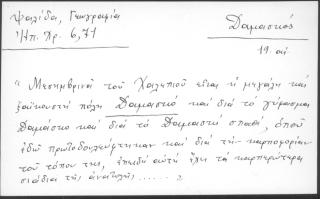 Ψαλίδα, Γεωγραφία
Ἠπ. Χρ. 6,71
Δαμασκός
19 αἰ.
"Μεσημβρινὰ τοῦ Χαλεπιοῦ εἶναι ἡ μεγάλη καὶ
ξακουστὴ πόλη Δαμασκὸ καὶ διὰ τὸ γύρασμα
Δαμάσκο καὶ διὰ τὸ Δαμασκὶ σπαθί, ὁποῦ
ἐδῶ πρωτοδουλεύτηκαν καὶ διὰ τὴν καρποφορίαν
τοῦ τόπου της, ἐπειδὴ αὐτὴ ἔχει τὰ καρπερώτερα
σιάδια τῆς ἀνατολῆς......"